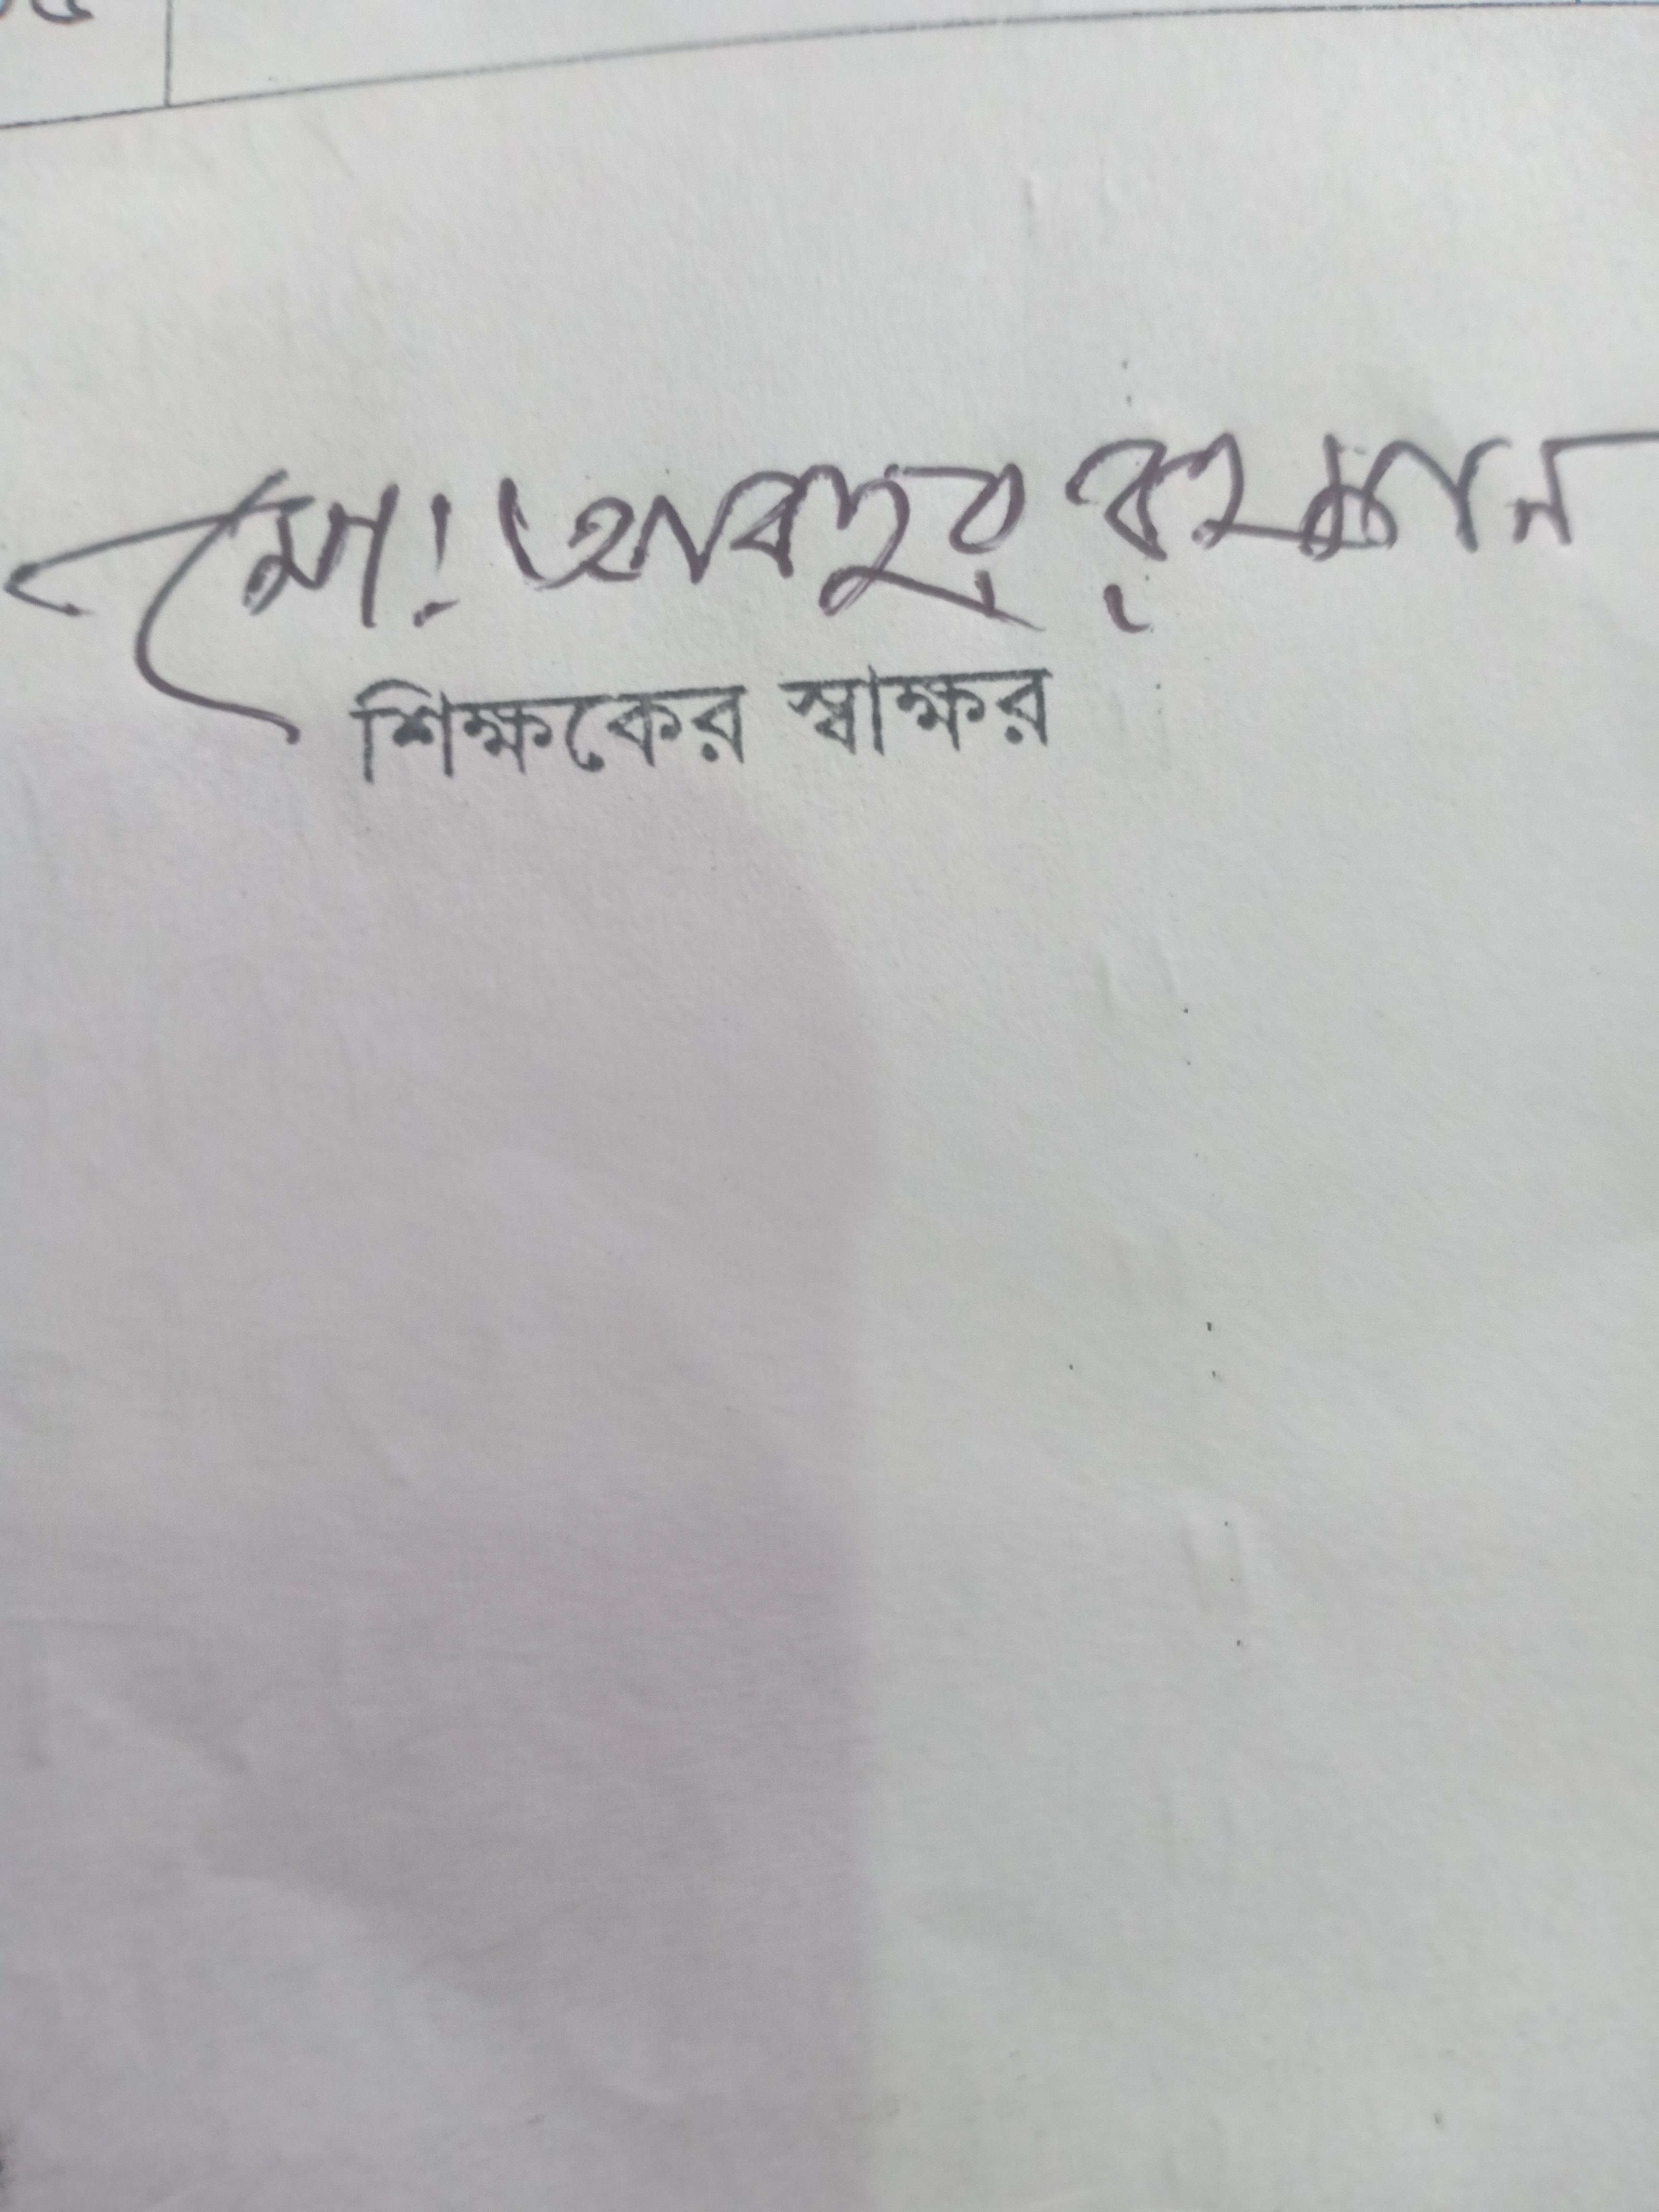 মো: আবদুর রহমান
শিক্ষকের স্বাক্ষর